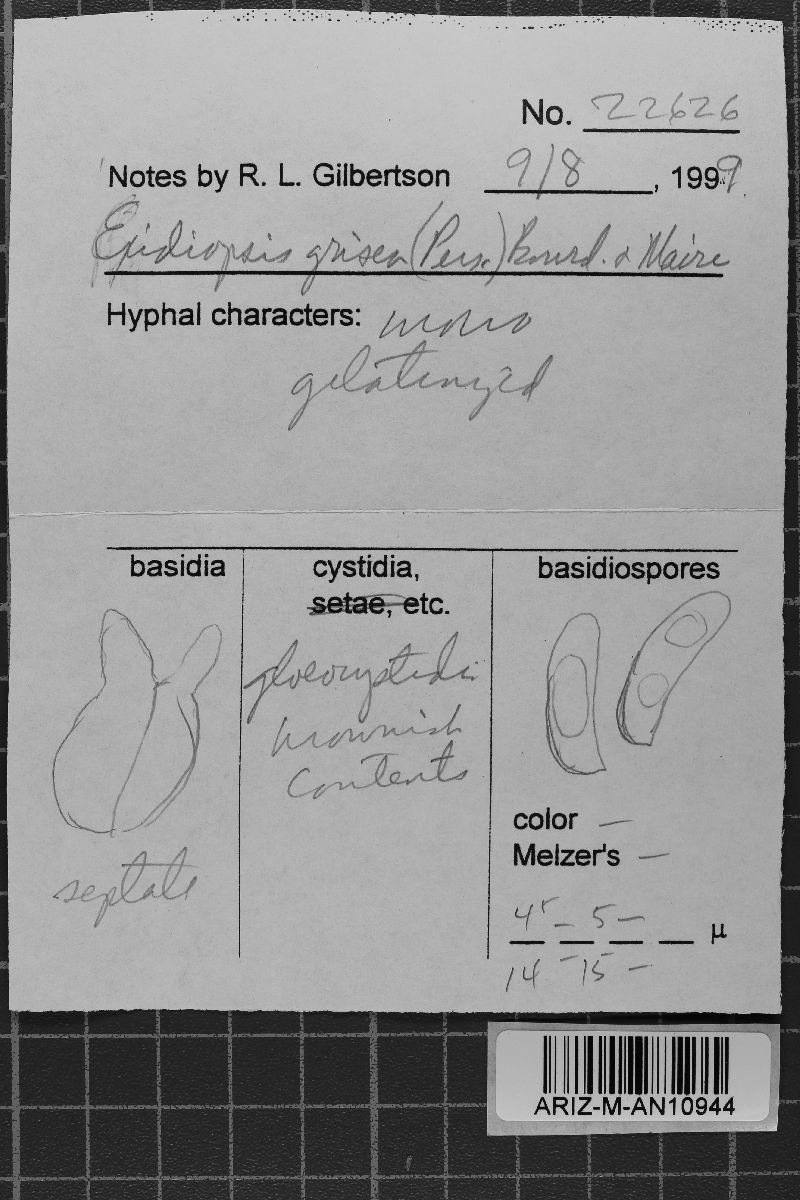 No. 22626
Notes by R. L. Gilbertson 9/8, 1999.
Exidiopsis grisea (Pers.) Bourd. & Maire
Hyphal characters: mono
gelatinized
basidia
cystidia,
setae, etc.
basidiospores
septate
gloeocystidia
brownish
contents
color —
Melzer's —
4⁵ – 5 — μ
14 – 15 –
ARIZ-M-AN10944